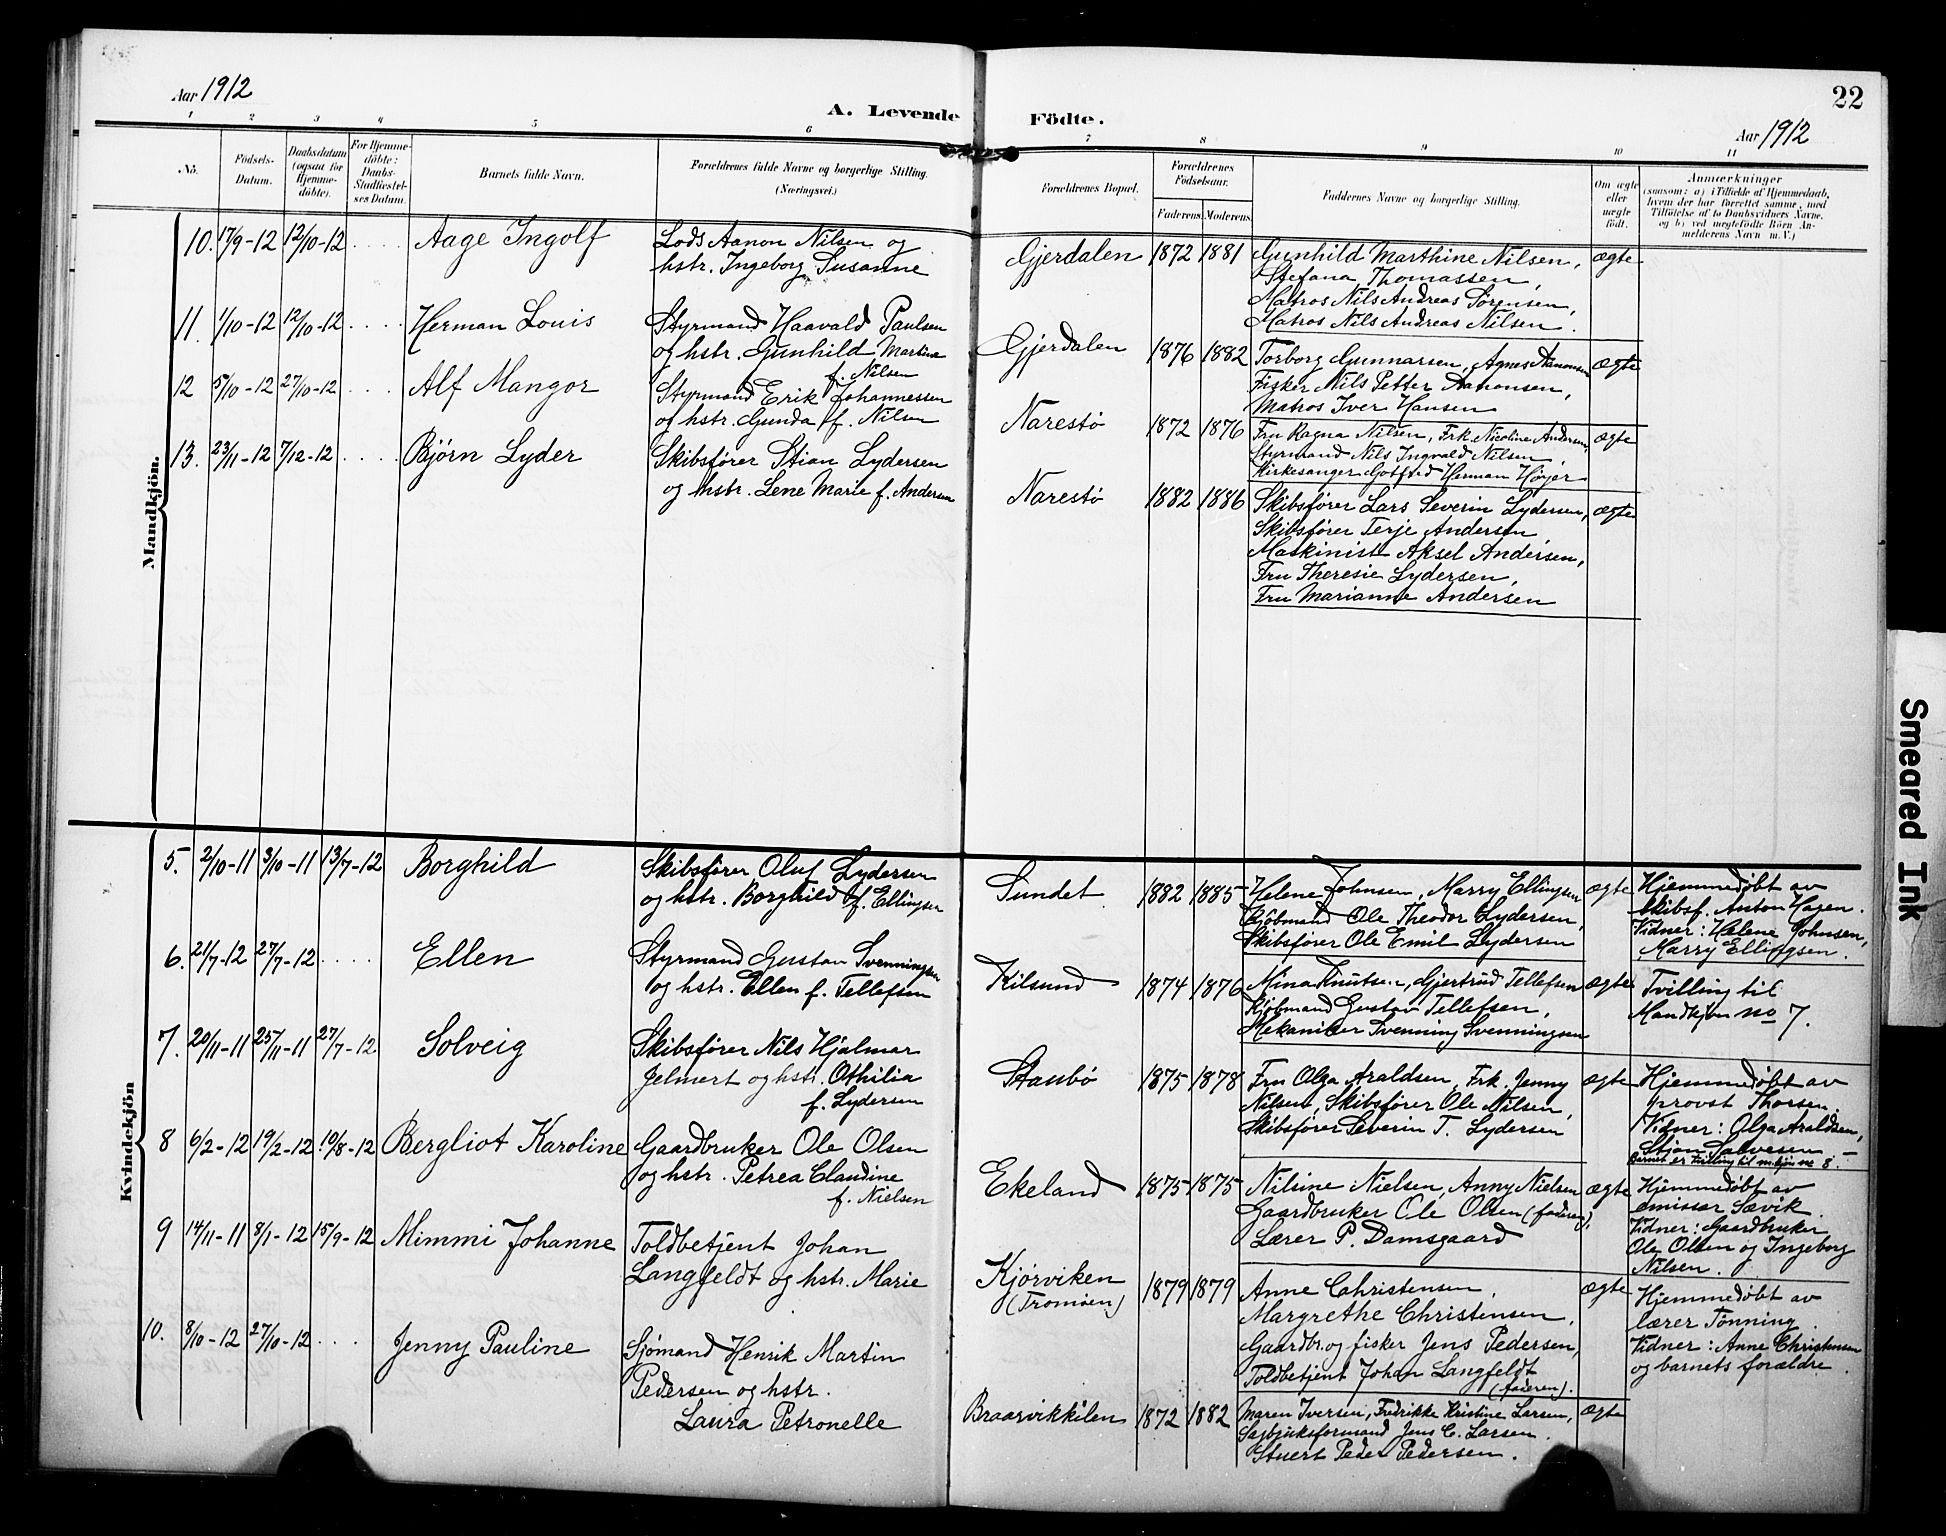 Aar 1912
A. Levende Födte.
22
Aar 1912
1 2 3 4 5 6 7 8 9 10 11
No.
Födsels-Datum.
Daabsdatum (ogsaa for Hjemme-döbte).
For Hjemme-döbte: Daabs-Stadfæstel-ses Datum.
Barnets fulde Navn.
Forældrenes fulde Navne og borgerlige Stilling. (Næringsvei.)
Forældrenes Bopæl.
Forældrenes Födselsaar.
Faderens. Moderens.
Faddernes Navne og borgerlige Stilling.
Om ægte eller uægte födt.
Anmærkninger
(saasom: a) i Tilfælde af Hjemmedaab, hvem der har forrettet samme, med Tilföielse af to Daabsvidners Navne, og b) ved uægtefödte Börn An-melderens Navn m. V.)
Mandkjön.
10. 17/9-12 12/10-12 .... Aage Ingolf
Lods Aanon Nilsen og
hstr. Ingeborg Susanne
Gjerdalen 1872 1881
Gunhild Marthine Nilsen,
Stefana Thomassen,
Matros Nils Andreas Sørensen,
Matros Nils Andreas Nilsen.
ægte
11. 1/10-12 12/10-12 .... Herman Louis
Styrmand Haavald Paulsen
og hstr. Gunhild Martine
f. Nilsen
Gjerdalen 1876 1882
Torborg Gunnarsen, Agnes Aanonsen
Fisker Nils Petter Aanonsen,
Matros Iver Hansen
ægte
12 5/10-12 27/10-12 .... Alf Mangor
Styrmand Erik Johannessen
og hstr. Gunda f. Nilsen
Narestø 1872 1876
Fru Ragna Nilsen, Frk. Nicoline Andersen,
Styrmand Nils Ingvald Nilsen
Kirkesanger Gotfred Herman Høyer
ægte
13. 23/11-12 7/12-12 .... Bjørn Lyder
Skibsfører Stian Lydersen
og hstr. Lene Marie f. Andersen
Narestø 1882 1886
Skibsfører Lars Severin Lydersen,
Skibsfører Terje Andersen
Maskinist Aksel Andersen,
Fru Theresie Lydersen,
Fru Marianne Andersen
ægte
Kvindekjön
5. 2/10-11 3/10-11 13/7-12 Borghild
Skibsfører Oluf Lydersen
og hstr. Borghild f. Ellingsen
Sundet 1882 1885
Helene Johnsen, Marry Ellingsen
Kjøbmand Ole Theodor Lydersen,
Skibsfører Ole Emil Lydersen
ægte
Hjemmedøbt av
skibsf. Anton Hagen.
Vidner: Helene Johnsen,
Marry Ellingsen.
6. 21/7-12 27/7-12 .... Ellen
Styrmand Gustav Svenningsen
og hstr. Ellen f. Tellefsen
Kilsund 1874 1876
Mina Knutsen, Gjertrud Tellefsen
Kjøbmand Gustav Tellefsen,
Mekaniker Svenning Svenningsen
ægte
Tvilling til
Mandkjøn no 7.
7. 20/11-11 25/11-11 27/7-12 Solveig
Skibsfører Nils Hjalmar
Jelmert og hstr. Othilia
f. Lydersen
Staubø 1875 1878
Fru Olga Araldsen, Frk. Jenny
Nilsen, Skibsfører Ole Nilsen,
Skibsfører Severin T. Lydersen
ægte
Hjemmedøbt av
provst Thorsen.
Vidner: Olga Araldsen,
Stian Salvesen –
Barnet er tvilling til m.kjøn no 8.
8 6/2-12 19/2-12 10/8-12 Bergliot Karoline
Gaardbruker Ole Olsen
og hstr. Petrea Claudine
f. Nielsen
Ekeland 1875 1875
Nilsine Nielsen, Anny Nielsen
Gaardbruker Ole Olsen (faderen),
Lærer P. Damsgaard
ægte
Hjemmedøbt av
emissær Sævik.
Vidner: Gaardbruker
Ole Olsen og Ingeborg
Nilsen.
9 14/11-11 8/1-12 15/9-12 Mimmi Johanne
Toldbetjent Johan
Langfeldt og hstr. Marie
Kjørviken
(Tromøen)
1879 1879
Anne Christensen,
Margrethe Christensen,
Gaardbr. og fisker Jens Pedersen,
Toldbetjent Johan Langfeldt
(faderen).
ægte
Hjemmedøbt av
lærer Tønning.
Vidner: Anne Christensen
og barnets forældre.
10. 8/10-12 27/10-12 .... Jenny Pauline
Sjømand Henrik Martin
Pedersen og hstr.
Laura Petronelle
Braarvikkilen 1872 1882
Maren Iversen, Fredrikke Kristine Larsen,
Sagbruksformand Jens C. Larsen.
Stuert Peder Pedersen.
ægte
Smeared Ink